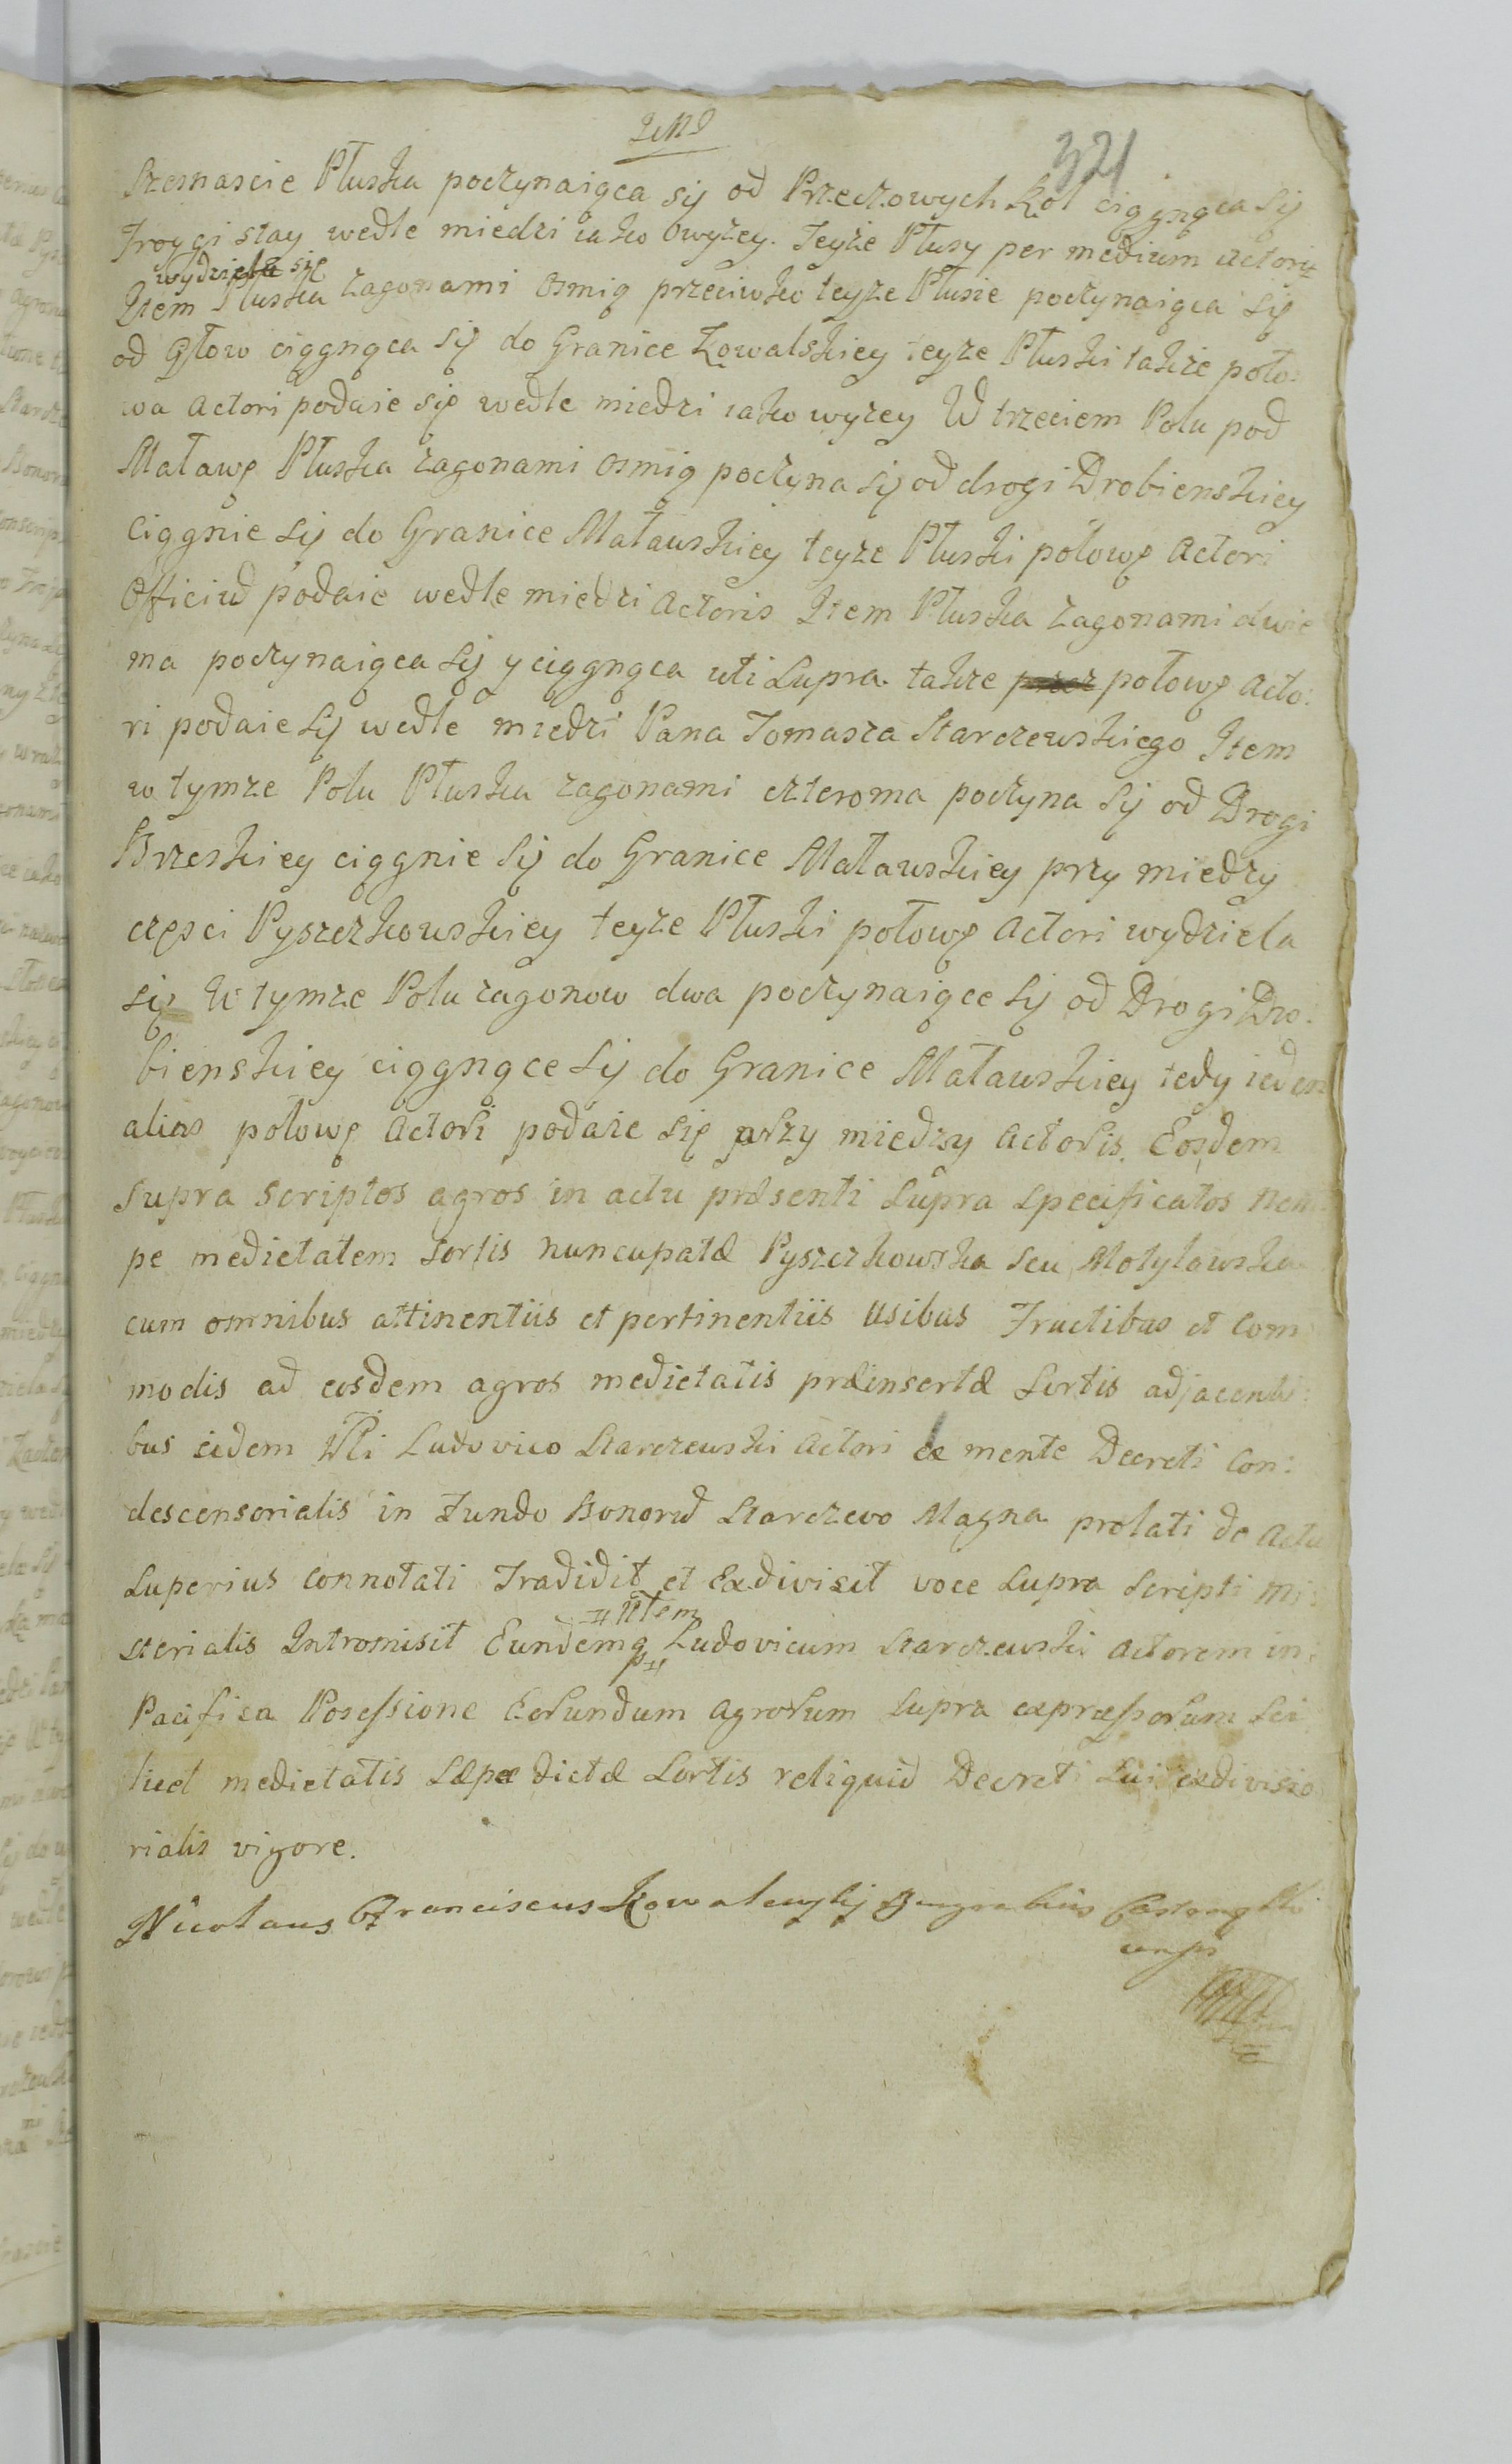 321
Szesnascie Płuska poczynaiąca sij od Przeczowych Rol ciągnąca sij
Troygi stay wedle miedzi iako Owyzey. Teyże Płusy per medium actori
wydziela się
Item Płuska zagonami osmią przeciwko teyze Płusie poczynaiąca się
od Głow ciągnąca się do Granice Kowalskiey teyze Płuski takze poło
wa Actori podaie się wedle miedzi iako wyzey W trzeciem Polu pod
Matawę Płuska zagonami osmią poczyna sij od drogi Drobienskiey
Ciągnie sij do Granice Matawskiey teyze Płuski połowę Actori
Officiud podaie wedle miedzi Actoris Item Płuska zagonami dwie
ma poczynaiąca sij y ciągnąca uti supra takze połowę Acto:
ri podaie sij wedle miedzi Pana Tomasza Starczewskiego Item
w tymze Polu Płuska zagonami czteroma poczyna sij od Drogi
Brzeskiey ciągnie sij do Granice Matawskiey przy miedzy
częsci Pyszczkowskiey teyze Płuski połowę Actori wydziela
się W tymze Polu zagonow dwa poczynaiące sij od Drogi Dro:
bienskiey ciągnące sij do Granice Matawskiey tedy ieden
alias połowę Actori podaie się przy miedzy Actoris. Eosdem
supra scriptos agros in actu præsenti supra specificatos nem
pe medietatem sortis nuncupatæ Pyszczkowska seu Motylowska
cum omnibus attinentiis et pertinentiis usibus Fructibus et Com
modis ad eosdem agros medietatis præinsertæ sortis adjacenti:
bus eidem Ludovico Starczewski Actori ex mente Decreti Con:
descensorialis in Fundo Bonorud Starczewo Magna prolati de Actu
superius connotati Tradidit et Exdivisit voce supra scripti mi
sterialis Intromisit Eundemq Ludovicum Starczewski Actorem in
Pacifica Possessione Eorundum agrorum supra expressorum sci
licet medietatis sæpe dictæ sortis reliquid Decreti sui exdiviso
rialis vigore.
Nicolaus Franciscus Kowalewskij